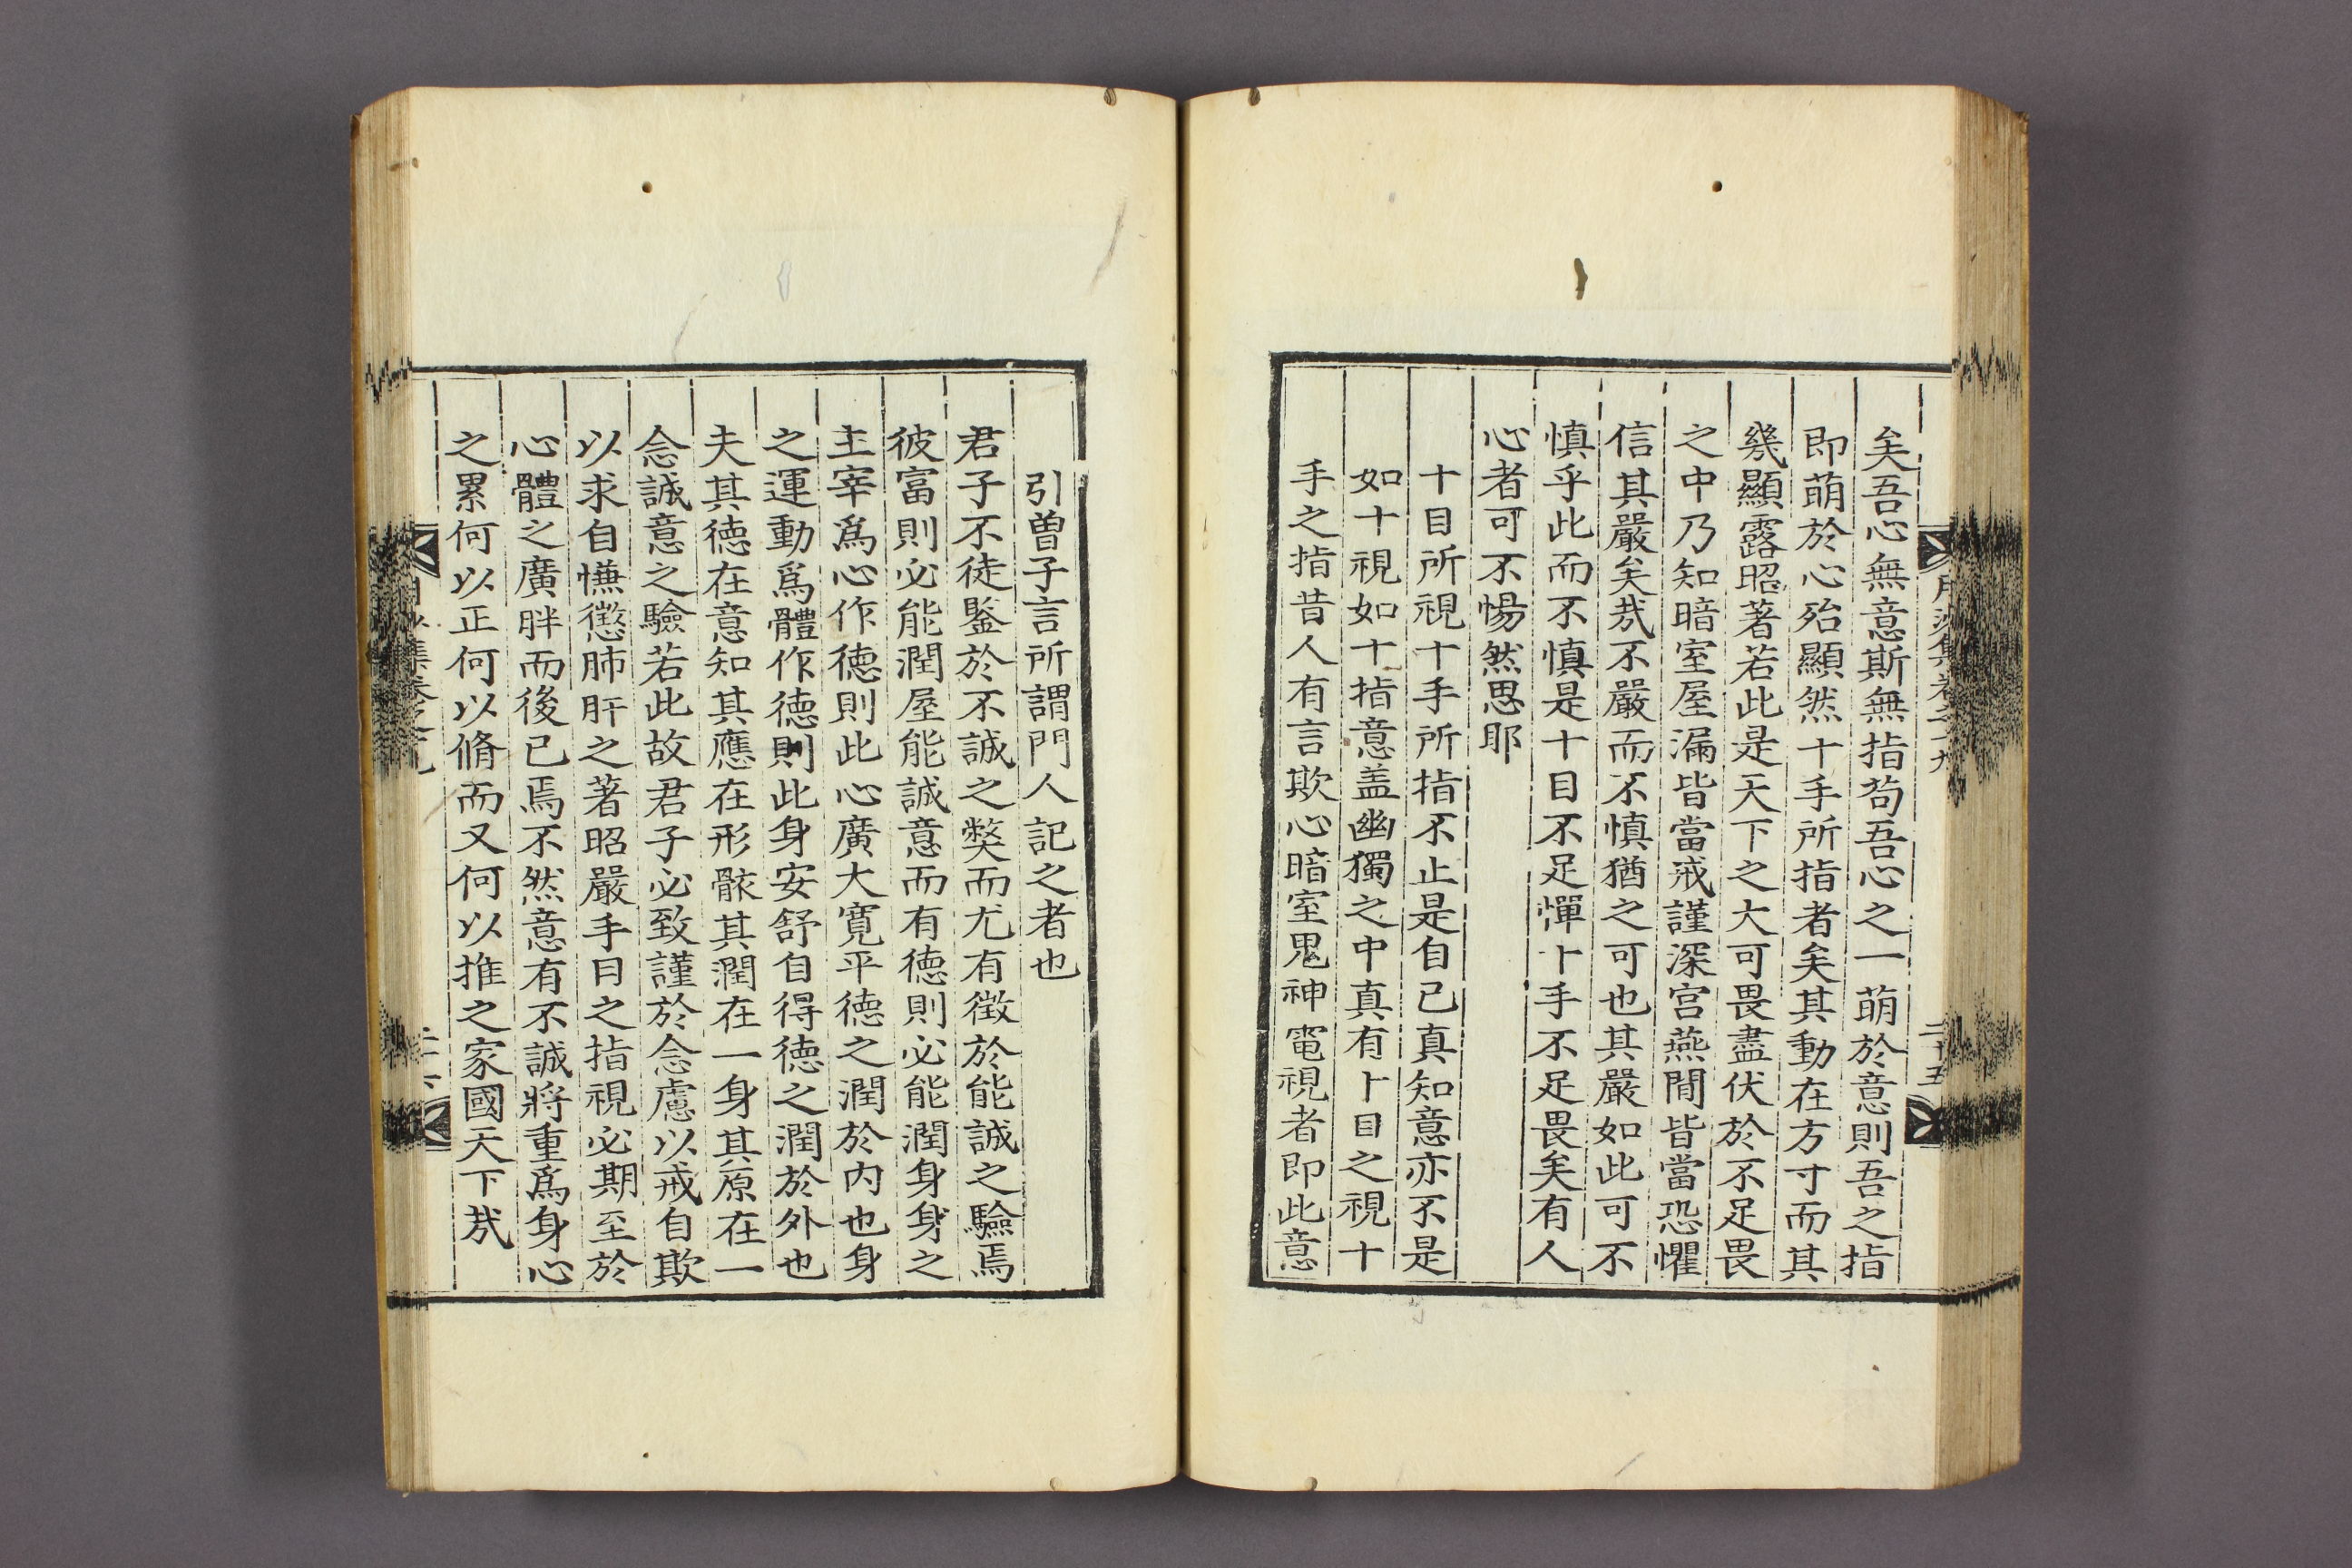 矣吾心無意斯無指苟吾心之一萌於意則吾之指
即萌於心殆顯然十手所指者矣其動在方寸而其
幾顯露昭著若此是天下之大可畏盡伏於不足畏
之中乃知暗室屋漏皆當戒謹深宮燕閒皆當恐懼
信其嚴矣㢤不嚴而不慎猶之可也其嚴如此可不
慎乎此而不慎是十目不足憚十手不足畏矣有人
心者可不惕然思耶
十目所視十手所指不止是自己真知意亦不是
如十視如十指意盖幽獨之中真有十目之視十
手之指昔人有言欺心暗室鬼神電視者即此意
引曾子言所謂門人記之者也
君子不徒鑒於不誠之獘而尤有徵於能誠之驗焉
彼富則必能潤屋能誠意而有德則必能潤身身之
主宰爲心作德則此心廣大寛平德之潤於内也身
之運動爲體作德則此身安舒自得德之潤於外也
夫其德在意知其應在形骸其潤在一身其原在一
念誠意之驗若此故君子必致謹於念慮以戒自欺
以求自慊懲肺肝之著昭嚴手目之指視必期至於
心體之廣胖而後已焉不然意有不誠將重爲身心
之累何以正何以脩而又何以推之家國天下㢤